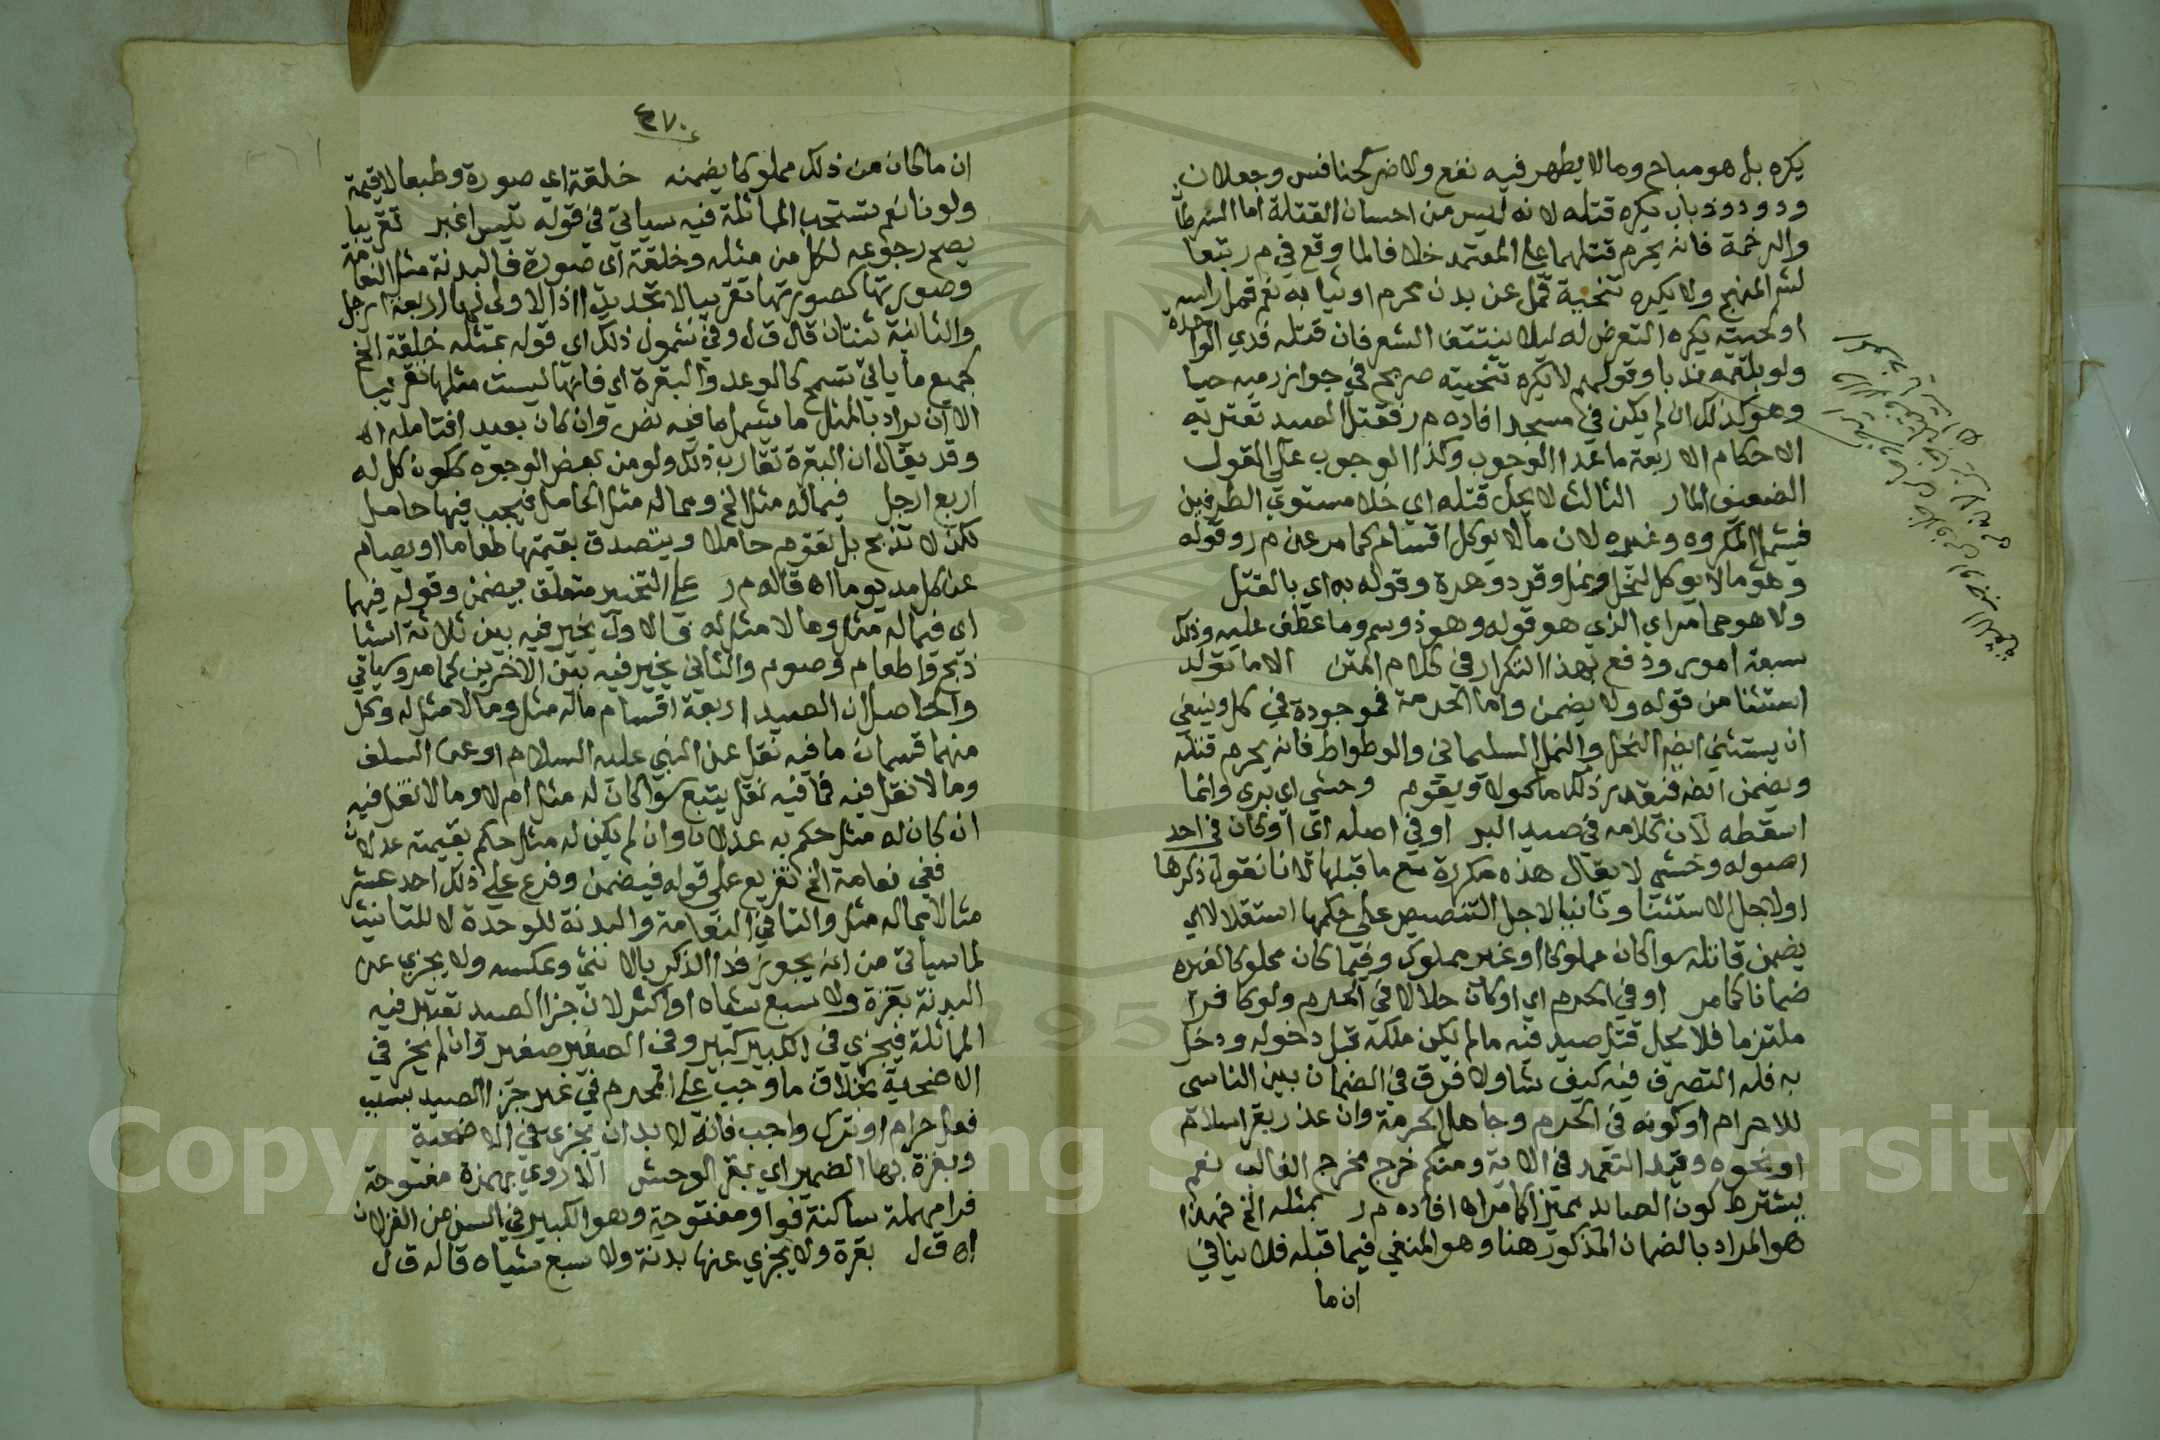 يكره بل هو مباح وما لا يظهر فيه نفع ولا ضر كخنافس وجعلان
ودود وذباب يكره قتله لانه ليس من احسان القتلة اما السرطان
والرخمة فانه يحرم قتلهما على المعتمد خلافا لما وقع في م ر تبعا
لشر المنهج ولا يكره تنحية قمل عن بدن محرم او ثيابه نعم قمل راسه
او لحيته يكره التعرض له ليلا ينتتف الشعر فان قتله فدي الواحدة
ولو بلقمة ندبا وقولهم لا يكره تنحيته صريح في جواز رميه حيا
وهو كذلك ان لم يكن في مسجد افاده م ر فقتل الصيد تعتريه
الاحكام الاربعة ماعدا الوجوب وكذا الوجوب على القول
الضعيف المار الثالث لا يحل قتله اي حلا مستوي الطرفين
فيشمل المكروه وغيره لان ما لا يوكل اقسام كما مر عن م ر وقوله
وهو ما لا يوكل كنحل ونمل وقرد وهرة وقوله به اي بالقتل
ولا هو مما مر اي الذي هو قوله وهو ذو سم وما عطف عليه وذلك
سبعة امور ودفع بهذا التكرار في كلام المتن الا ما تولد
استثنا من قوله ولا يضمن واما الحرمة فموجودة في كل وينبغي
ان يستثني ايضا النحل والنمل السليماني والوطواط فانه يحرم قتله
ويضمن ايضا فيقدر ذلك ماكولا ويقوم وحشي اي بري وانما
اسقطه لان كلامه في صيد البر او في اصله اي او كان في احد
اصوله وحشي لا يقال هذه مكررة مع ما قبلها لانا نقول ذكرها
اولا لاجل الاستثنا وثانيا لاجل التنصيص على حكمها استقلالا اي
يضمن قاتله سوا كان مملوكا او غير مملوك وفيما كان مملوكا لغيره
ضمانا كما مر او في الحرم اي او كان حلالا في الحرم ولو كافرا
ملتزما فلا يحل قتل صيد فيه ما لم يكن ملكه قبل دخوله ودخل
به فله التصرف فيه كيف شا ولا فرق في الضمان بين الناسي
للاحرام او كونه في الحرم وجاهل الحرمة وان عذر بقرب اسلامه
او نحوه وقيد التعمد في الاية ومنكم خرج مخرج الغالب نعم
يشترط كون الصايد مميزا كما مر اه افاده م ر بمثله الخ فهذا
هو المراد بالضمان المذكور هنا وهو المنفي فيما قبله فلا ينافي
ان ما
٤٧٠
ان ما كان من ذلك مملوكا يضمنه خلقة اي صورة وطبعا لا قيمة
ولونا نعم تستحب المماثلة فيه سياتي في قوله تيس اغبر تقريبا
يصح رجوعه لكل من مثله وخلقة اي صورة فالبدنة مثل النعامة
وصورتها كصورتها تقريبا لا تحديدا اذ الاولى لها اربعة ارجل
والثانية ثنتان قال ق ل وفي شمول ذلك اي قوله بمثله خلقة الخ
لجميع ما ياتي تسمح كالوعد والبقرة اي فانها ليست مثلها تقريبا
الا ان يراد بالمثل ما يشمل ما فيه نص وان كان بعيد افتامله اه
وقد يقال ان البقرة تقارب ذلك ولو من بعض الوجوه ككون كل له
اربع ارجل فيما له مثل الخ ومما له مثل الحامل فيجب فيها حامل
لكن لا تذبح بل تقوم حاملا ويتصدق بقيمتها طعاما او يصام
عن كل مد يوما اه قاله م ر على التخيير متعلق بيضمن وقوله فيهما
اي فيما له مثل وما لا مثل له فالاول يخير فيه بين ثلاثة اشيا
ذبح واطعام وصوم والثاني يخير فيه بين الاخرين كما مر وسياتي
والحاصل ان الصيد اربعة اقسام ما له مثل وما لا مثل له وكل
منهما قسمان ما فيه نقل عن النبي عليه السلام او عن السلف
وما لا نقل فيه فما فيه نقل يتبع سوا كان له مثل ام لا وما لا نقل فيه
ان كان له مثل حكم به عدلان وان لم يكن له مثل حكم بقيمته عدلان
ففي نعامة الخ تفريع على قوله فيضمن وفرع على ذلك احد عشر
مثالا مما له مثل والتا في النعامة والبدنة للوحدة لا للتانيث
لما سياتي من انه يجوز فدا الذكر بالانثى وعكسه ولا يجزي عن
البدنة بقرة ولا سبع شياه او اكثر لان جزا الصيد تعتبر فيه
المماثلة فيجزي في الكبير كبير وفي الصغير صغير وان لم يجز في
الاضحية بخلاف ما وجب على المحرم في غير جزا الصيد بسبب
فعل حرام او ترك واجب فانه لا بد ان يجزي في الاضحية
وبقرة بها الضمير اي بقر الوحش الاروي بهمزة مفتوحة
فرا مهملة ساكنة فواو مفتوحة وهو الكبير في السن من الغزلان
اه ق ل بقرة ولا يجزي عنها بدنة ولا سبع شياه قاله ق ل
Copyright © King Saud University
1957